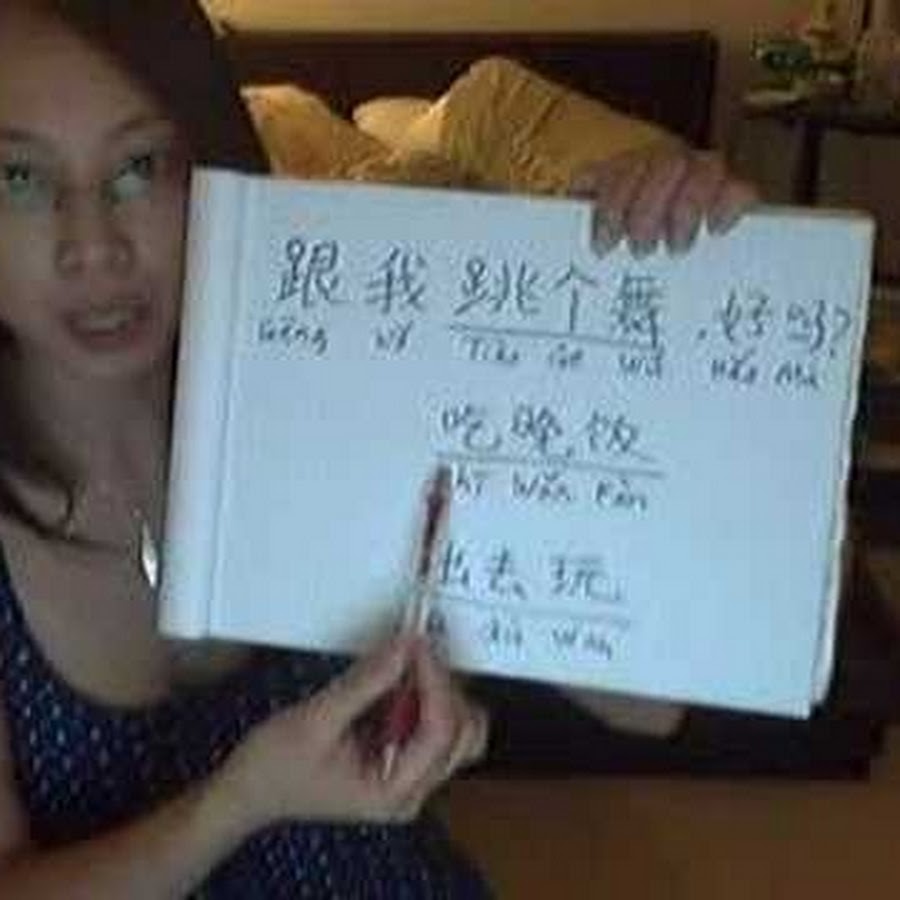 跟我跳个舞,好吗?
gēng wǒ Tiào Ge wǔ Hǎo Ma
吃晚饭
chī wǎn Fàn
出去玩
qù wán